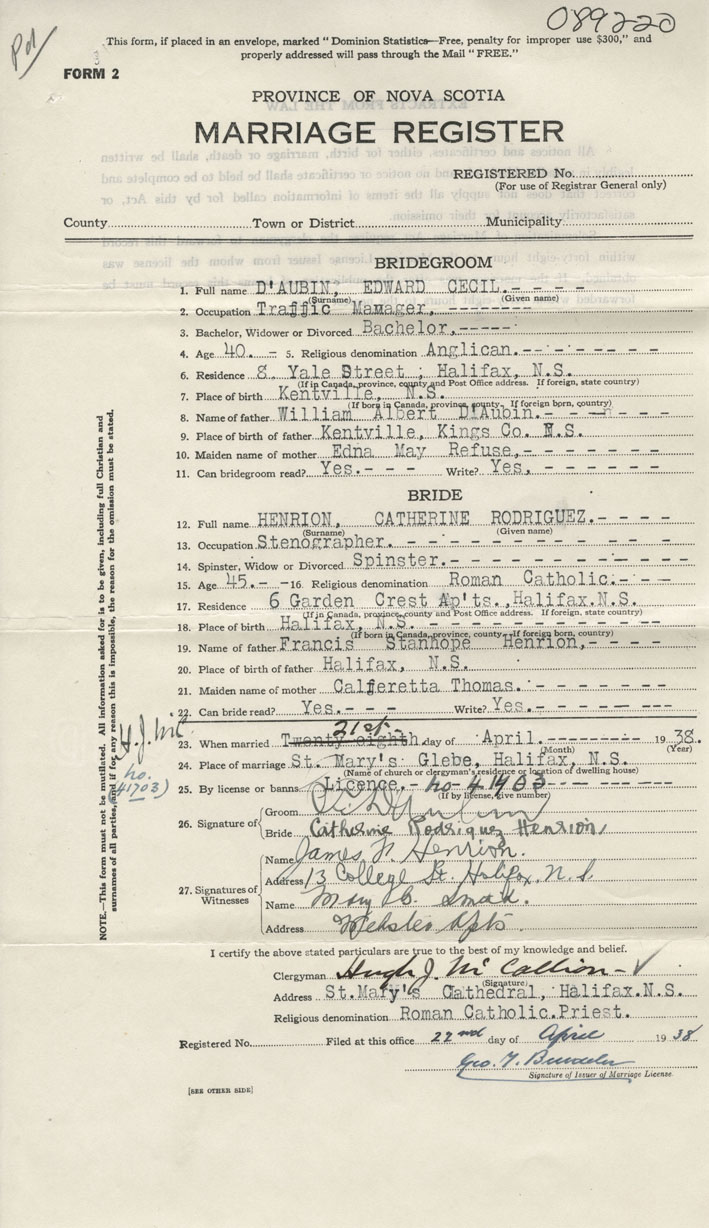 089220
Pd
This form, if placed in an envelope, marked " Dominion Statistics—Free, penalty for improper use $300," and
properly addressed will pass through the Mail " FREE."
3
FORM 2
PROVINCE OF NOVA SCOTIA
MARRIAGE REGISTER
REGISTERED No.
(For use of Registrar General only)
County Town or District Municipality
BRIDEGROOM
1. Full name D'AUBIN, EDWARD CECIL.- - - -
(Surname) (Given name)
2. Occupation Traffic Manager, --------
3. Bachelor, Widower or Divorced Bachelor,-----
4. Age 40. - 5. Religious denomination Anglican.- - - - - -
6. Residence 8 Yale Street ; Halifax, N.S.
(If in Canada, province, county and Post Office address. If foreign, state country)
7. Place of birth Kentville, N.S.
(If born in Canada, province, county. If foreign born, country)
8. Name of father William Albert D'Aubin.- - - -
9. Place of birth of father Kentville, Kings Co. N.S.
10. Maiden name of mother Edna May Refuse,- - - - - -
11. Can bridegroom read? Yes.- - - Write? Yes, - - - - - -
BRIDE
12. Full name HENRION, CATHERINE RODRIGUEZ.- - - -
(Surname) (Given name)
13. Occupation Stenographer. - - - - - - - - - - -
14. Spinster, Widow or Divorced Spinster.- - - - - - - - -
15. Age 45.- -16. Religious denomination Roman Catholic.- - -
17. Residence 6 Garden Crest Ap'ts.,Halifax.N.S.
(If in Canada, province, county and Post Office address. If foreign, state country)
18. Place of birth Halifax, N.S. - - - - - - - - - -
(If born in Canada, province, county. If foreign born, country)
19. Name of father Francis Stanhope Henrion,- - - -
20. Place of birth of father Halifax, N.S.
21. Maiden name of mother Calferetta Thomas.- - - - - - -
22. Can bride read? Yes.- - - Write? Yes.- - - - - -
21st
23. When married Twenty eighth day of April.-------- 1938.
(Month) (Year)
24. Place of marriage St. Mary's Glebe, Halifax, N.S.
(Name of church or clergyman's residence or location of dwelling house)
25. By license or banns Licence.- no- 41703 - - - -
(If by license, give number)
26. Signature of Groom
Bride Catherine Rodriguez Henrion,
27. Signatures of Witnesses
Name James F. Henrion.
Address 13 College St. Halifax, N.S.
Name Mary C. Smith.
Address Webster Apts.
I certify the above stated particulars are true to the best of my knowledge and belief.
Clergyman Hugh J. McCallion-
(Signature)
Address St.Mary's Cathedral, Halifax.N.S.
Religious denomination Roman Catholic.Priest.
Registered No. Filed at this office 22nd day of April 1938
Geo. T.
Signature of Issuer of Marriage License
[SEE OTHER SIDE]
NOTE.—This form must not be mutilated. All information asked for is to be given, including full Christian and
surnames of all parties, and if for any reason this is impossible, the reason for the omission must be stated.
H.J.McC
no.
41703)